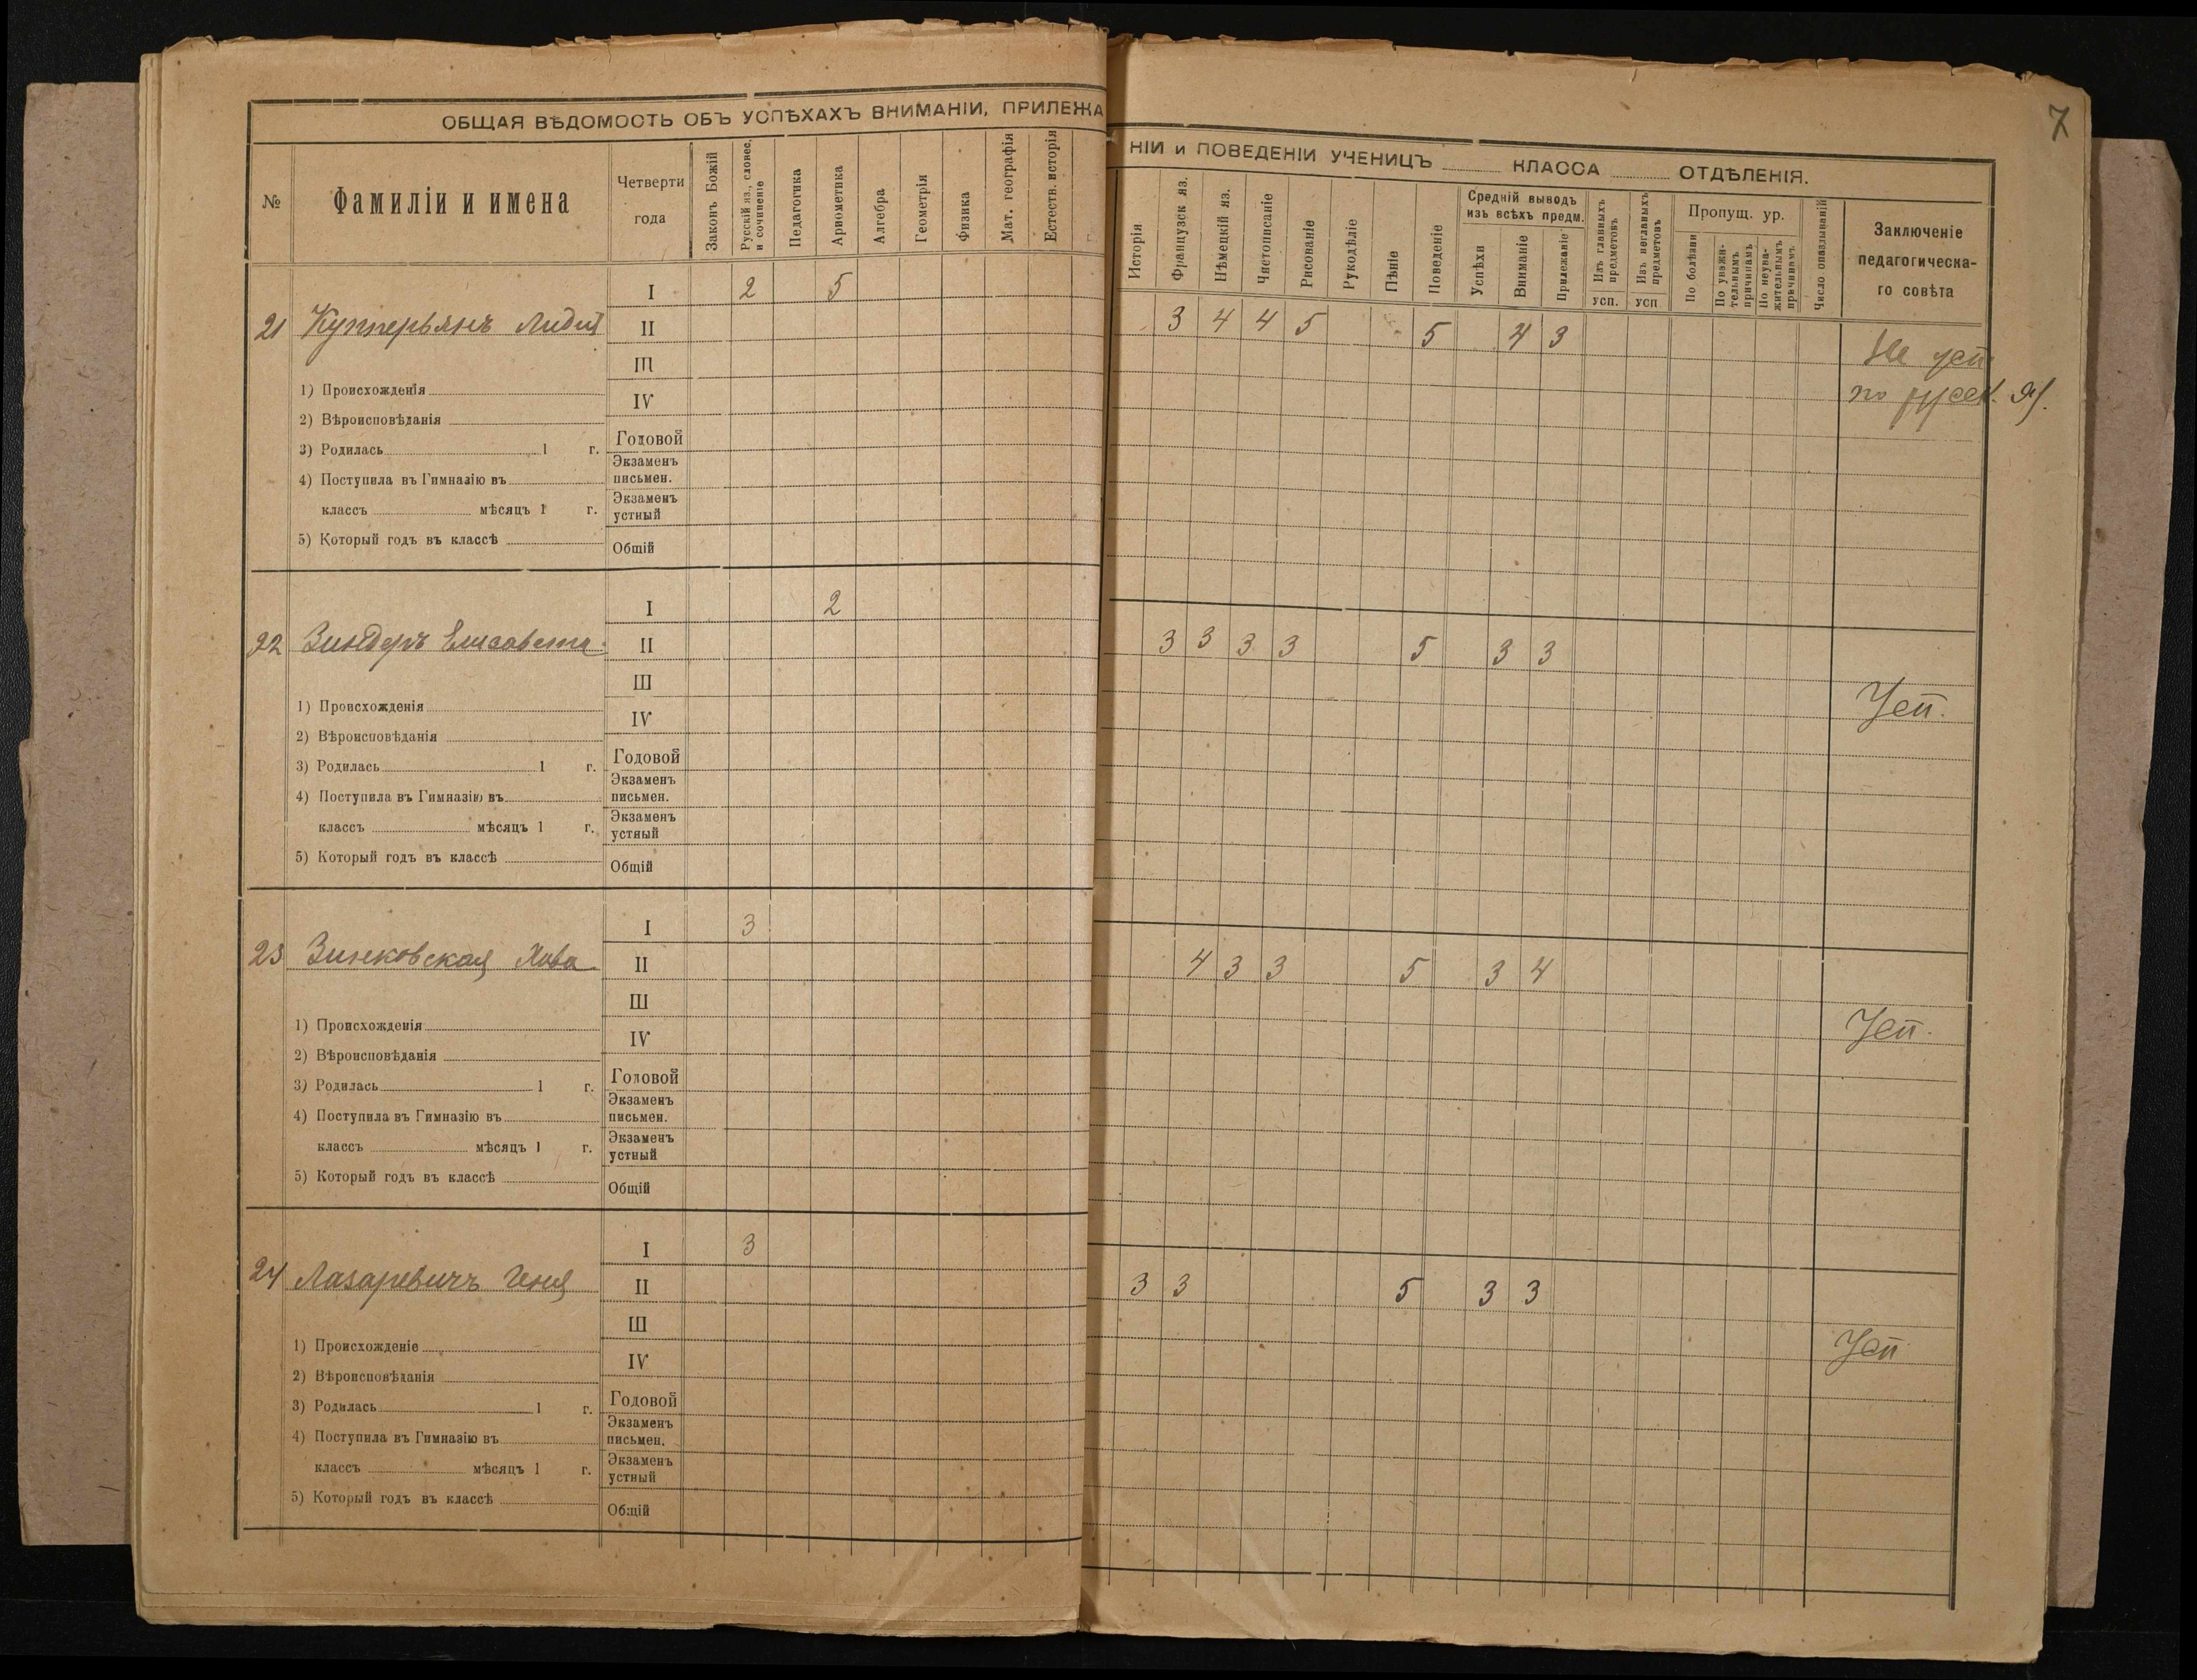 7
ОБЩАЯ ВѢДОМОСТЬ ОБЪ УСПѢХАХЪ ВНИМАНІИ, ПРИЛЕЖА
НІИ и ПОВЕДЕНІИ УЧЕНИЦЪ КЛАССА ОТДѢЛЕНІЯ.
№
Фамиліи и имена
Четверти
года
Законъ Божій
Русскій яз., словес.
и сочиненіе
Педагогика
Ариѳметика
Алгебра
Геометрія
Физика
Мат. географія
Естеств. исторія
Исторія
Французск яз.
Нѣмецкій яз.
Чистописаніе
Рисованіе
Рукодѣліе
Пѣніе
Поведеніе
Средній выводъ
изъ всѣхъ предм.
Успѣхи
Вниманіе
Прилежаніе
Изъ главныхъ
предметовъ
УСП.
Изъ неглавныхъ
предметовъ
УСП
Пропущ. ур.
По болѣзни
По уважи-
тельнымъ
причинамъ
По неува-
жительнымъ
причинамъ
Число опаздываній
Заключеніе
педагогическа-
го совѣта
I 2 5
21 Купперьянъ Лидія II
3 4 4 5 5 4 3
Не усп
по русск. яз.
III
1) Происхожденія
IV
2) Вѣроисповѣданія
Годовой
3) Родилась 1 г.
Экзаменъ
письмен.
4) Поступила въ Гимназію въ
Экзаменъ
устный
классъ мѣсяцъ 1 г.
5) Который годъ въ классѣ
Общій
I 2
22 Зиндеръ Елисавета II
3 3 3 3 5 3 3
Усп.
III
1) Происхожденія
IV
2) Вѣроисповѣданія
Годовой
3) Родилась 1 г.
Экзаменъ
письмен.
4) Поступила въ Гимназію въ
Экзаменъ
устный
классъ мѣсяцъ 1 г.
5) Который годъ въ классѣ
Общій
I 3
23 Зинковская Хова II
4 3 3 5 3 4
Усп.
III
1) Происхожденія
IV
2) Вѣроисповѣданія
Годовой
3) Родилась 1 г.
Экзаменъ
письмен.
4) Поступила въ Гимназію въ
Экзаменъ
устный
классъ мѣсяцъ 1 г.
5) Который годъ въ классѣ
Общій
I 3
24 Лазаревичъ Геня II
3 3 5 3 3
Усп
III
1) Происхожденіе
IV
2) Вѣроисповѣданія
Годовой
3) Родилась 1 г.
Экзаменъ
письмен.
4) Поступила въ Гимназію въ
Экзаменъ
устный
классъ мѣсяцъ 1 г.
5) Который годъ въ классѣ
Общій